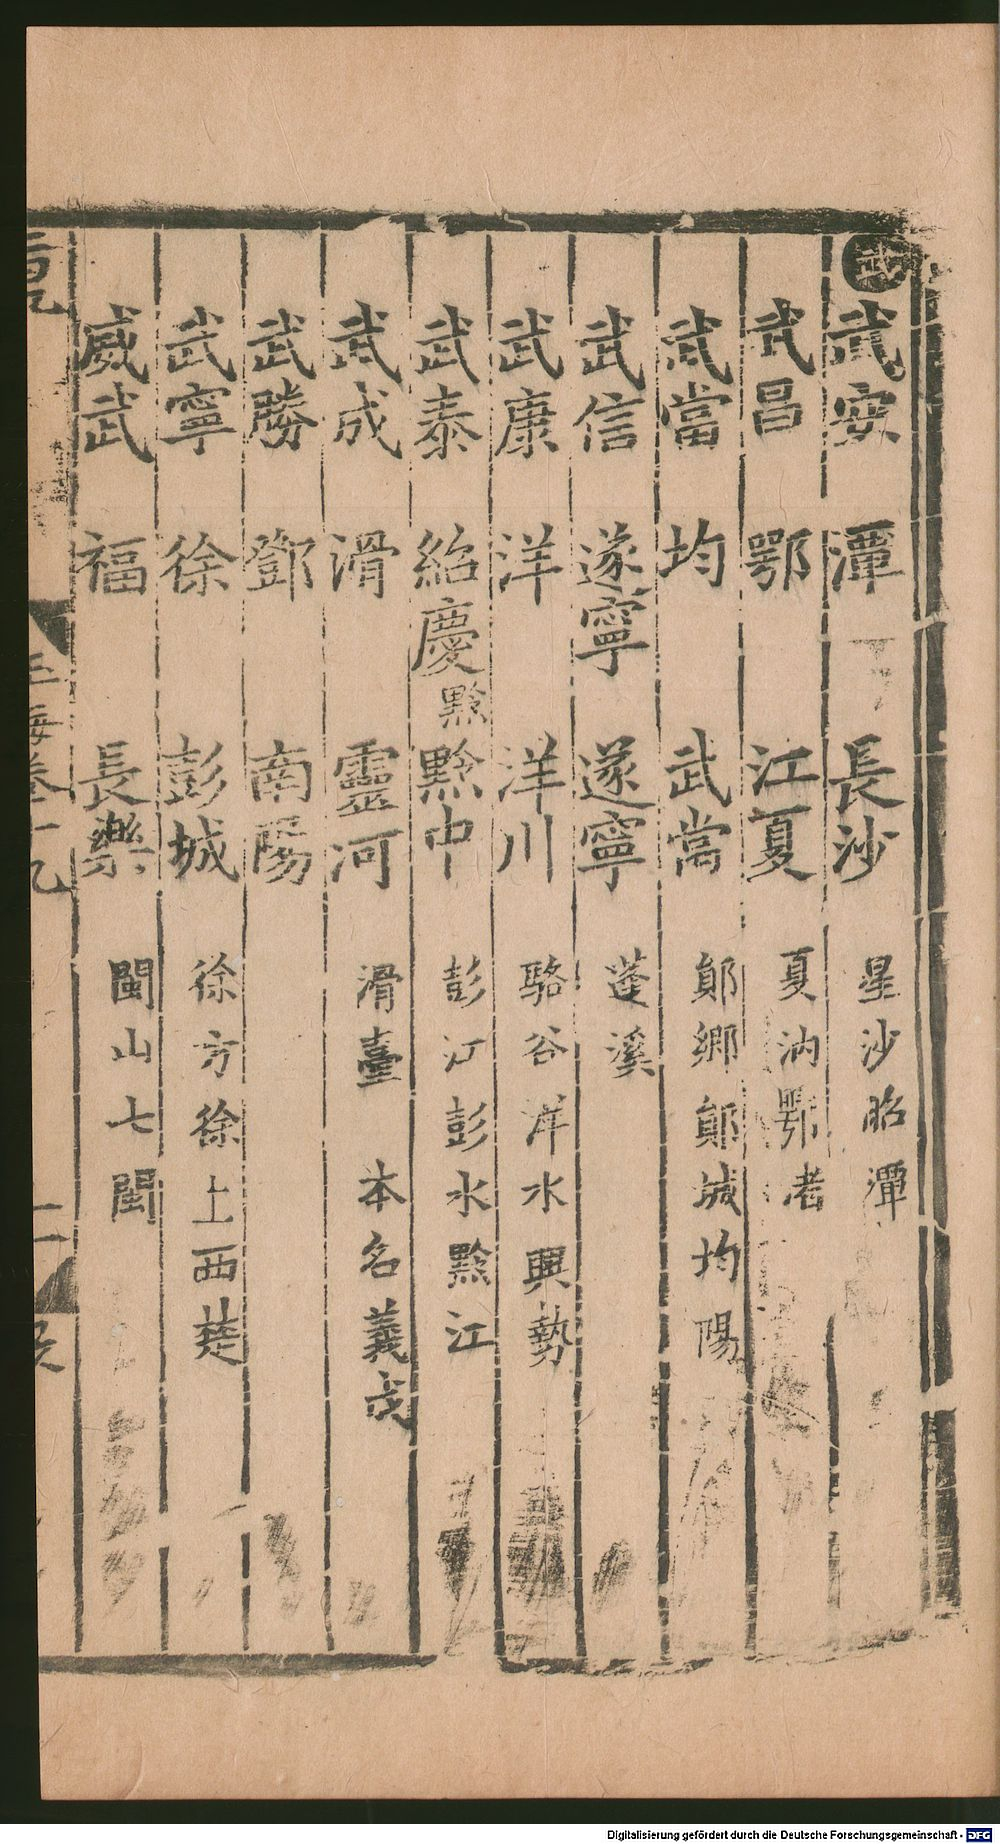 武
武安 潭 長沙 星沙 昭潭
武昌 鄂 江夏 夏汭 鄂渚
武當 均 武當 鄖鄉 鄖城 均陽
武信 遂寧 遂寧 蓬溪
武康 洋 洋川 駱谷 洋水 興勢
武泰 紹慶黔 黔中 彭江 彭水 黔江
武成 滑 靈河 滑臺 本名義成
武勝 鄧 南陽
武寧 徐 彭城 徐方 徐土 西楚
威武 福 長樂 閩山 七閩
玉海卷十九
Digitalisierung gefördert durch die Deutsche Forschungsgemeinschaft - DFG